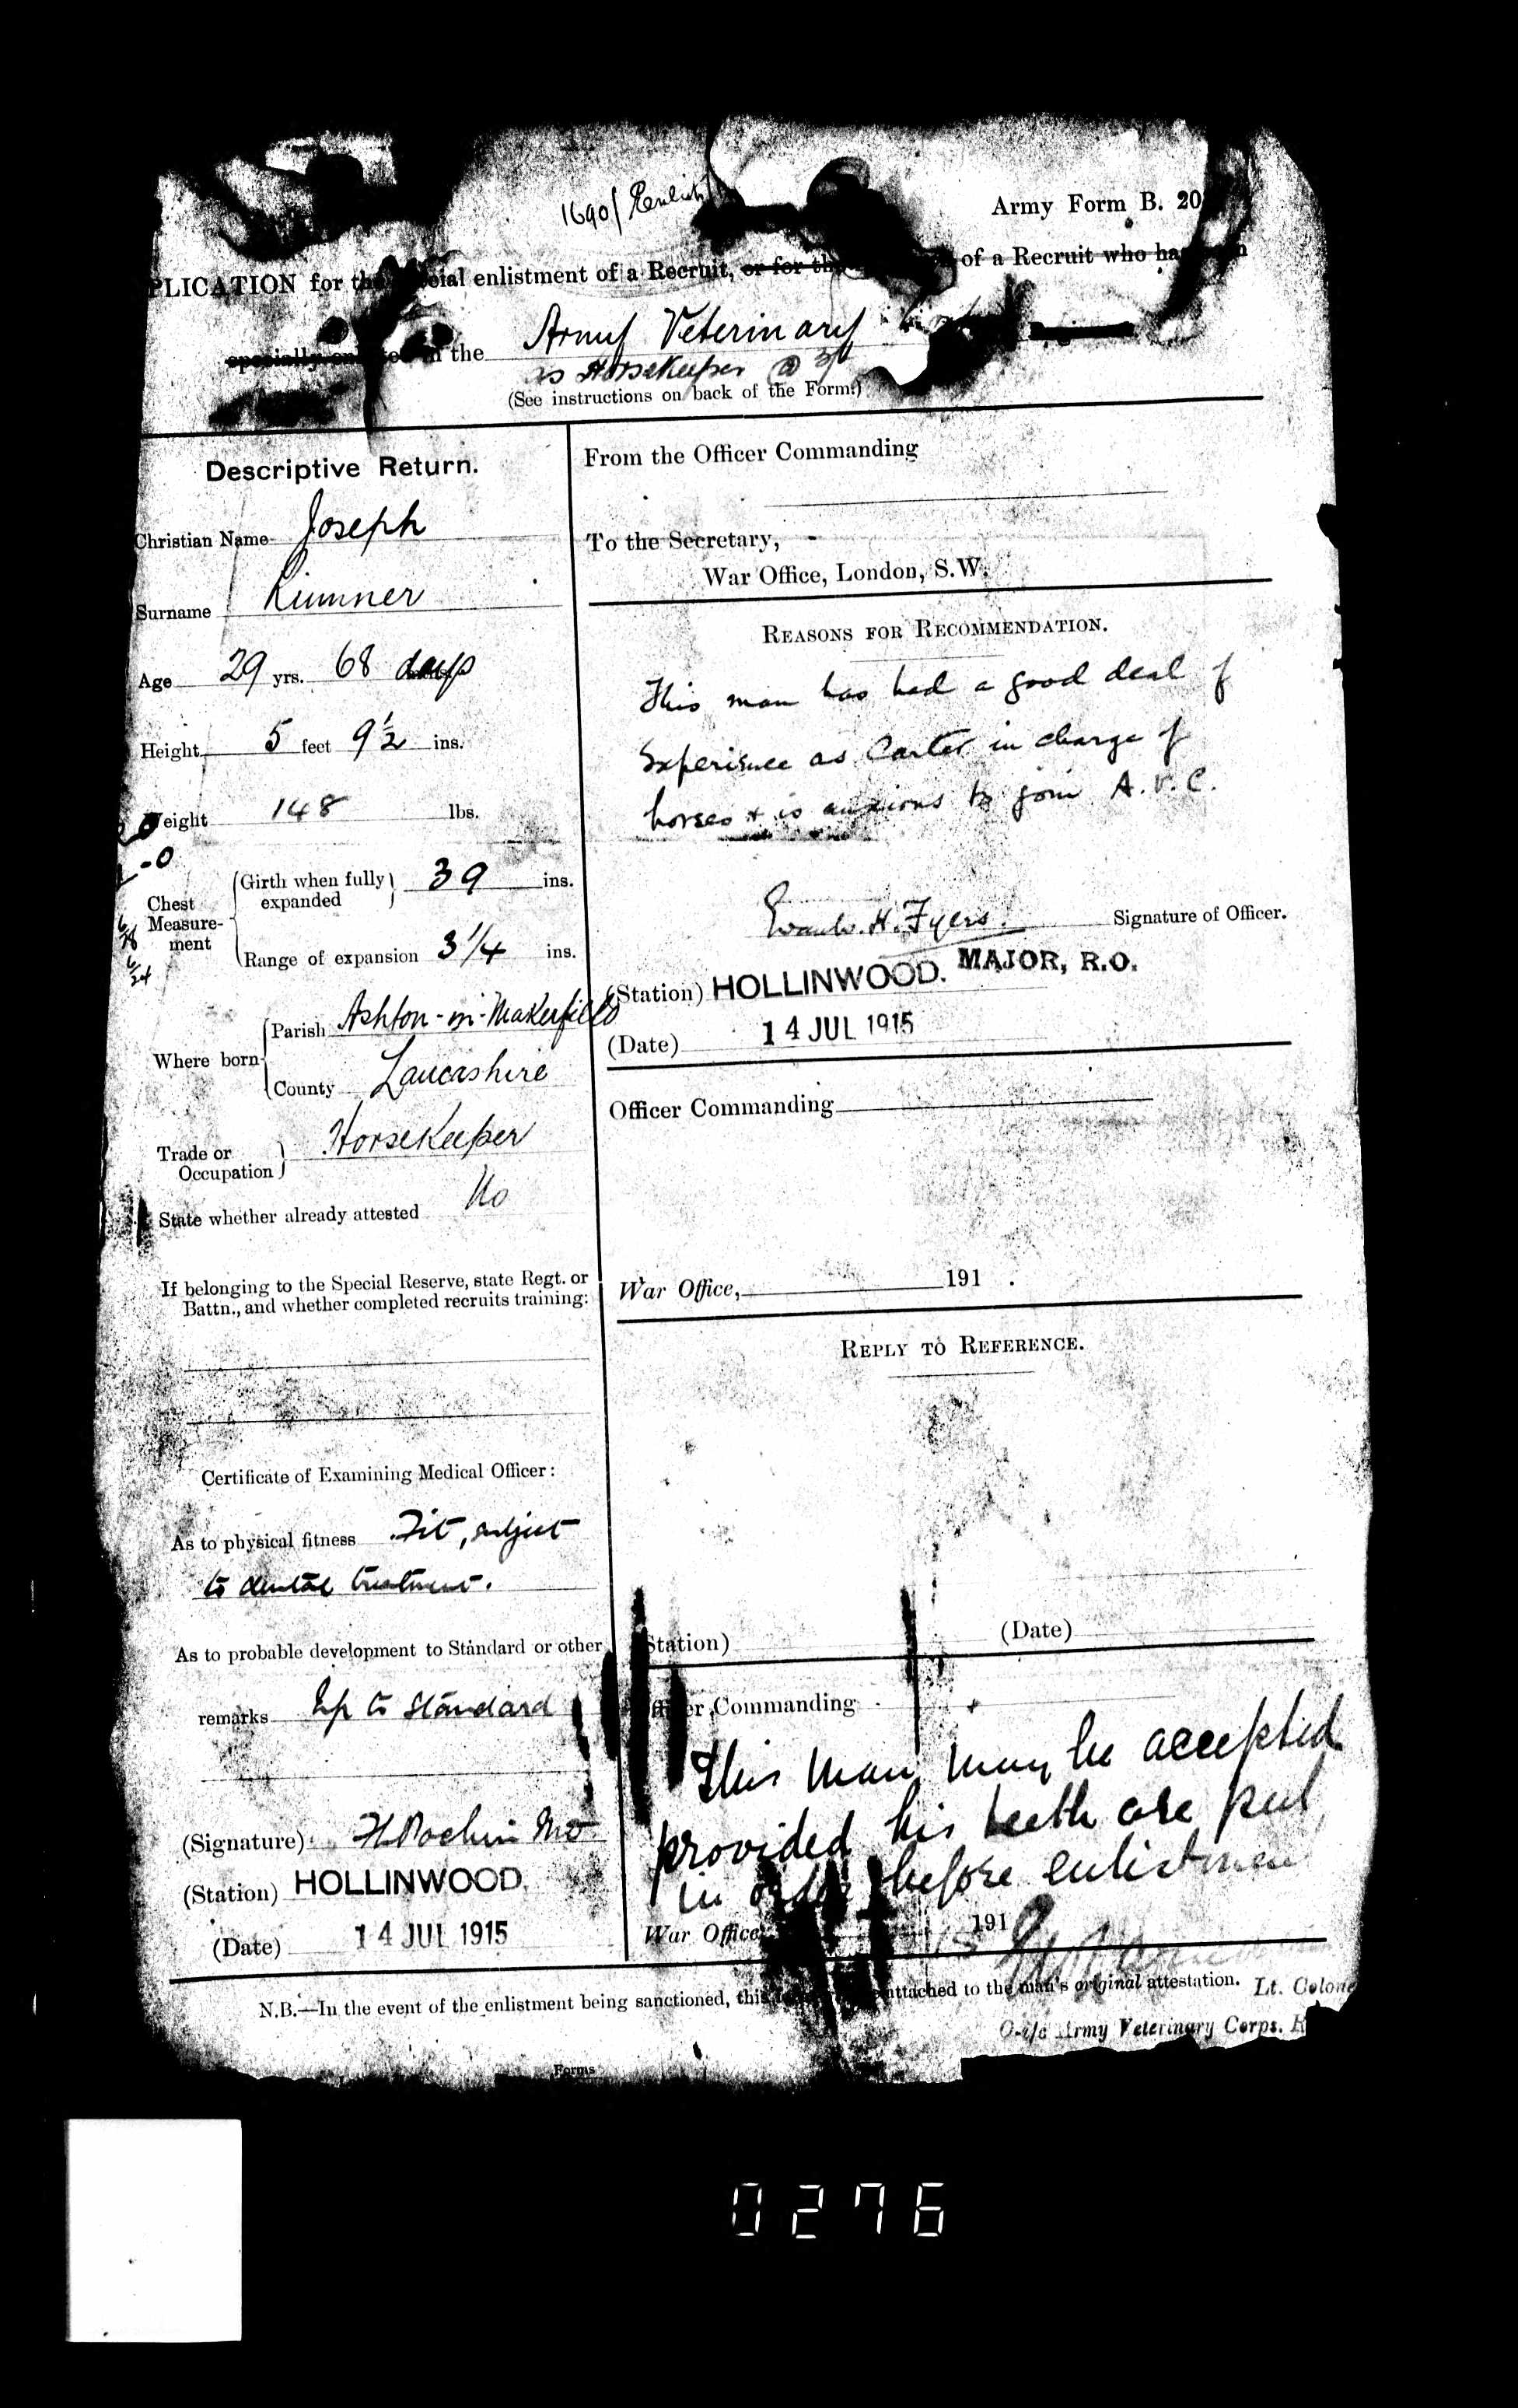 1690/
Army Form B. 20
PLICATION for the cial enlistment of a Recruit, or for the of a Recruit who ha
the Army Veterinary
as Horsekeeper @
(See instructions on back of the Form.)
Descriptive Return.
Christian Name Joseph
Surname Rimmer
Age 29 yrs. 68 days
Height 5 feet 9½ ins.
Weight 148 lbs.
Chest Measure-ment
Girth when fully expanded 39 ins.
Range of expansion 3¼ ins.
Where born
Parish Ashton-in-Makerfield
County Lancashire
Trade or Occupation Horsekeeper
State whether already attested No
If belonging to the Special Reserve, state Regt. or
Battn., and whether completed recruits training:
Certificate of Examining Medical Officer:
As to physical fitness Fit, subject
to dental treatment.
As to probable development to Standard or other
remarks Up to Standard
(Signature)
(Station) HOLLINWOOD.
(Date) 14 JUL 1915
From the Officer Commanding
To the Secretary,
War Office, London, S.W.
REASONS FOR RECOMMENDATION.
This man has had a good deal of
experience as Carter in charge of
horses & is anxious to join A.V.C.
H. Fyers. Signature of Officer.
MAJOR, R.O.
(Station) HOLLINWOOD.
(Date) 14 JUL 1915
Officer Commanding
War Office, 191 .
REPLY TO REFERENCE.
(Station) (Date)
Officer Commanding
This man may be accepted
provided his teeth are put
in order before enlistment
War Office 191
N.B.—In the event of the enlistment being sanctioned, this attached to the man's original attestation.
Lt. Colone
O. i/c Army Veterinary Corps. R
Forms
0276